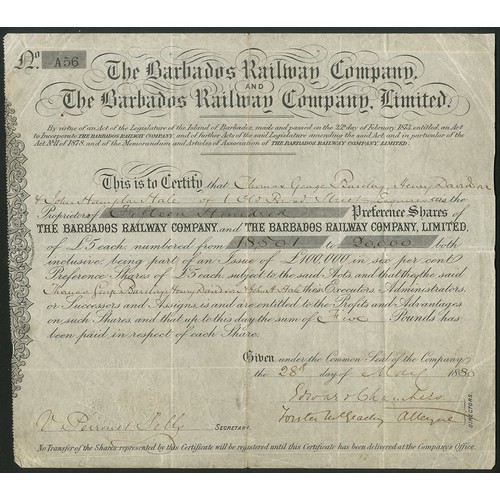 No. A56
The Barbados Railway Company,
AND
The Barbados Railway Company, Limited.
By virtue of an Act of the Legislature of the Island of Barbados, made and passed on the 22nd day of February 1873, entitled, an Act
to Incorporate THE BARBADOS RAILWAY COMPANY, and of further Acts of the said Legislature amending the said Act, and in particular of the
Act No. 11 of 1878, and of the Memorandum and Articles of Association of THE BARBADOS RAILWAY COMPANY, LIMITED.
This is to Certify that Thomas George Barclay Henry Davidson
& John Hampton Hale of 1 Old Broad Street are the
Proprietors of Hundred Preference Shares of
THE BARBADOS RAILWAY COMPANY, and THE BARBADOS RAILWAY COMPANY, LIMITED,
of £5 each, numbered from 18501 to 20,000 both
inclusive, being part of an Issue of £100,000 in six per cent
Preference Shares of £5 each subject to the said Acts and that they the said
Thomas George Barclay Henry Davidson John H Hale their Executors, Administrators,
or Successors and Assigns is and are entitled to the Profits and Advantages
on such Shares and that up to this day the sum of Five Pounds has
been paid in respect of each Share.
Given under the Common Seal of the Company
the 28th day of May 188
Edward Chambers
DIRECTORS.
SECRETARY.
No Transfer of the Shares represented by this Certificate will be registered until this Certificate has been delivered at the Company's Office.